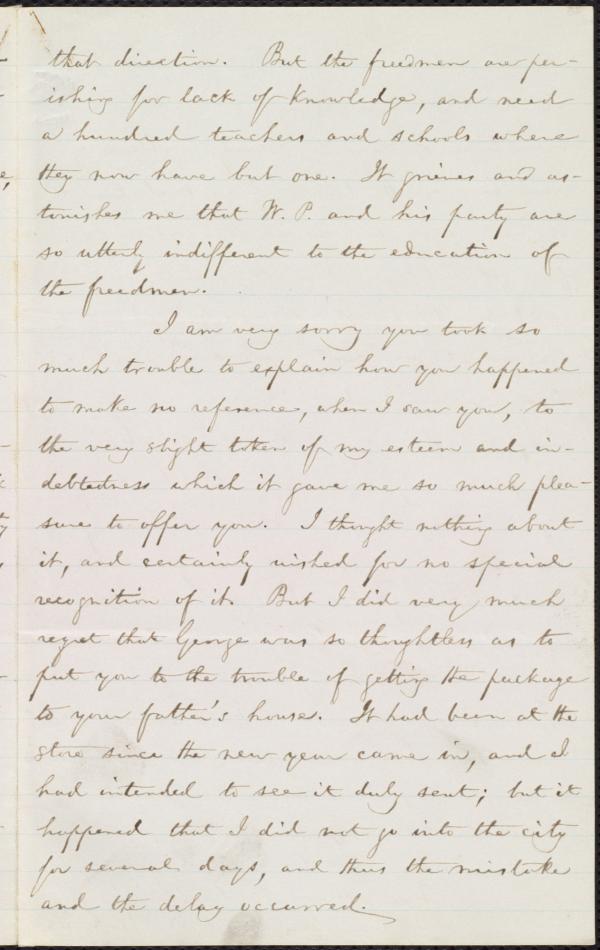 that direction. But the freedmen are per-
ishing for lack of knowledge, and need
a hundred teachers and schools where
they now have but one. It grieves and as-
tonishes me that W. P. and his party are
so utterly indifferent to the education of
the freedmen.
I am very sorry you took so
much trouble to explain how you happened
to make no reference, when I saw you, to
the very slight token of my esteem and in-
debtedness which it gave me so much plea-
sure to offer you. I thought nothing about
it, and certainly wished for no special
recognition of it. But I did very much
regret that George was so thoughtless as to
put you to the trouble of getting the package
to your father's house. It had been at the
store since the new year came in, and I
had intended to see it duly sent; but it
happened that I did not go into the city
for several days, and thus the mistake
and the delay occurred.